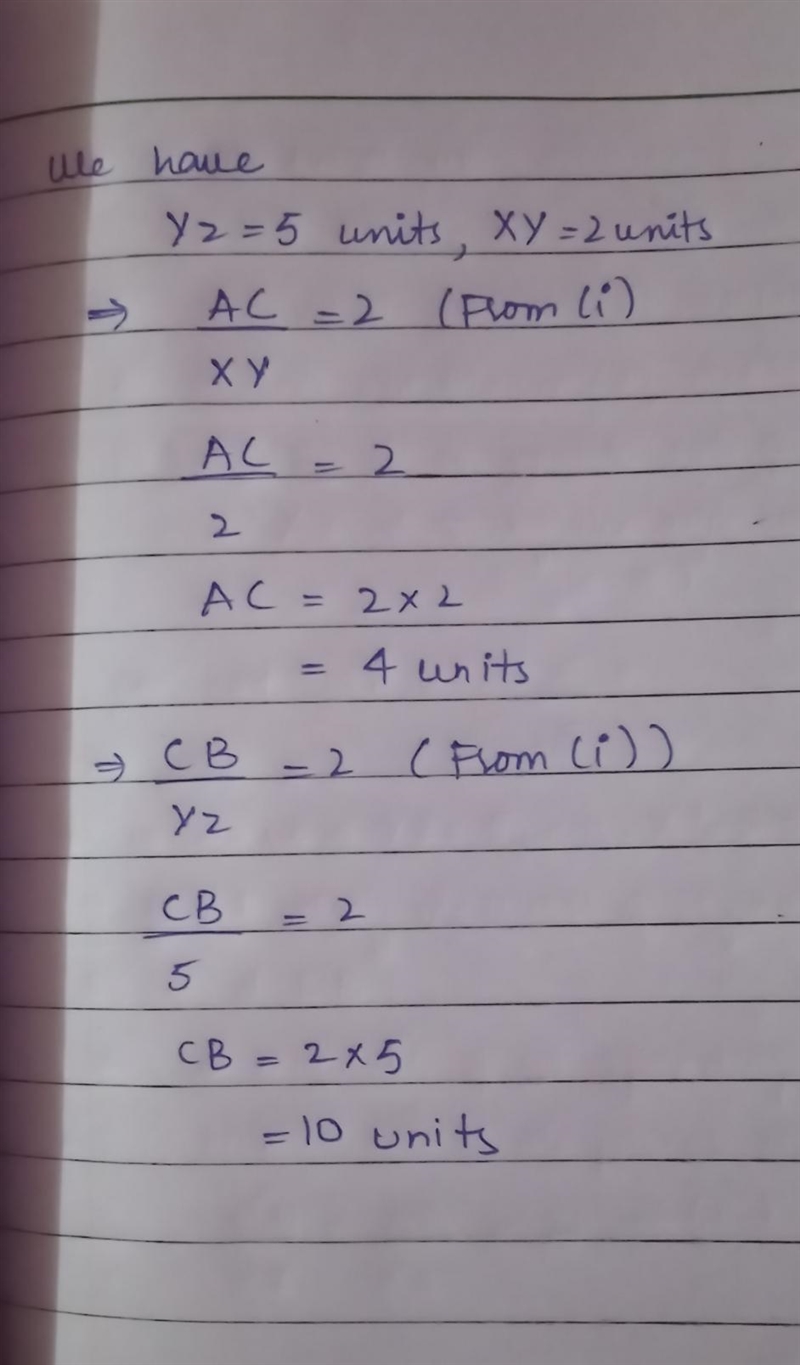 We have
YZ = 5 units, XY = 2 units
⇒ AC = 2 (From (i)
XY
AC = 2
2
AC = 2 × 2
= 4 units
⇒ CB = 2 (From (i))
YZ
CB = 2
5
CB = 2 × 5
= 10 units